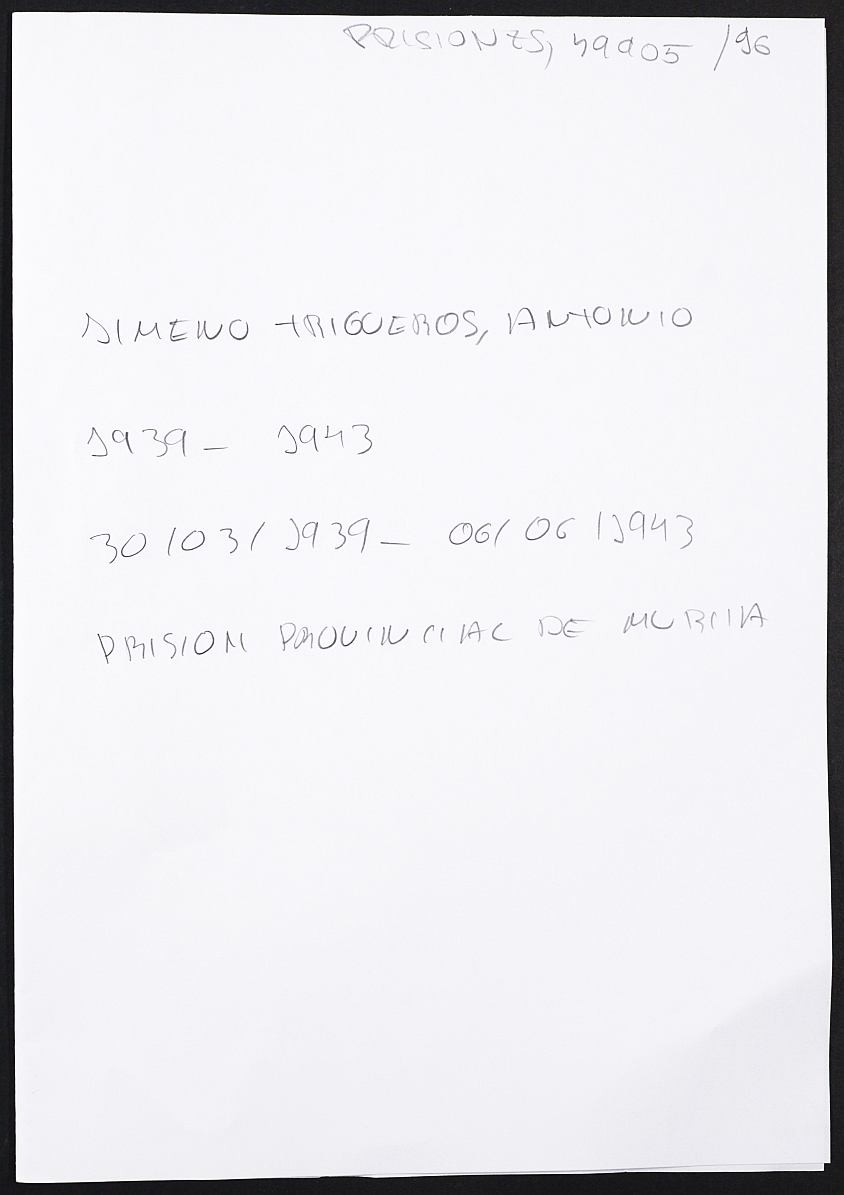 PRISIONES, 49905 /96
JIMENO TRIGUEROS, ANTONIO
1939 - 1943
30/03/1939 - 06/06/1943
PRISION PROVINCIAL DE MURCIA